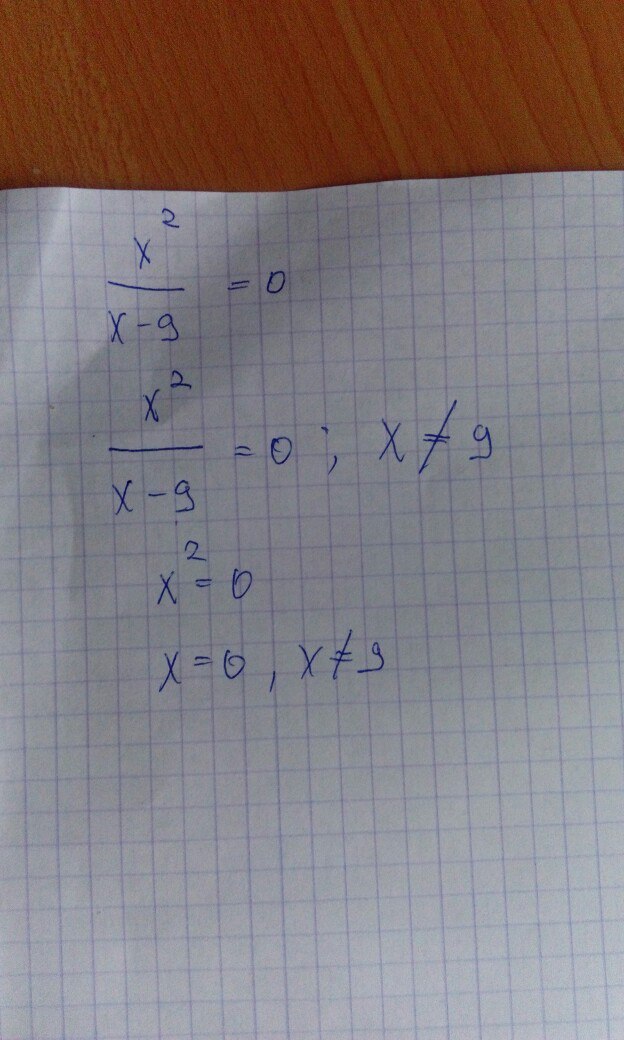 x²/(x-9) = 0
x²/(x-9) = 0 ; x ≠ 9
x² = 0
x = 0 , x ≠ 9